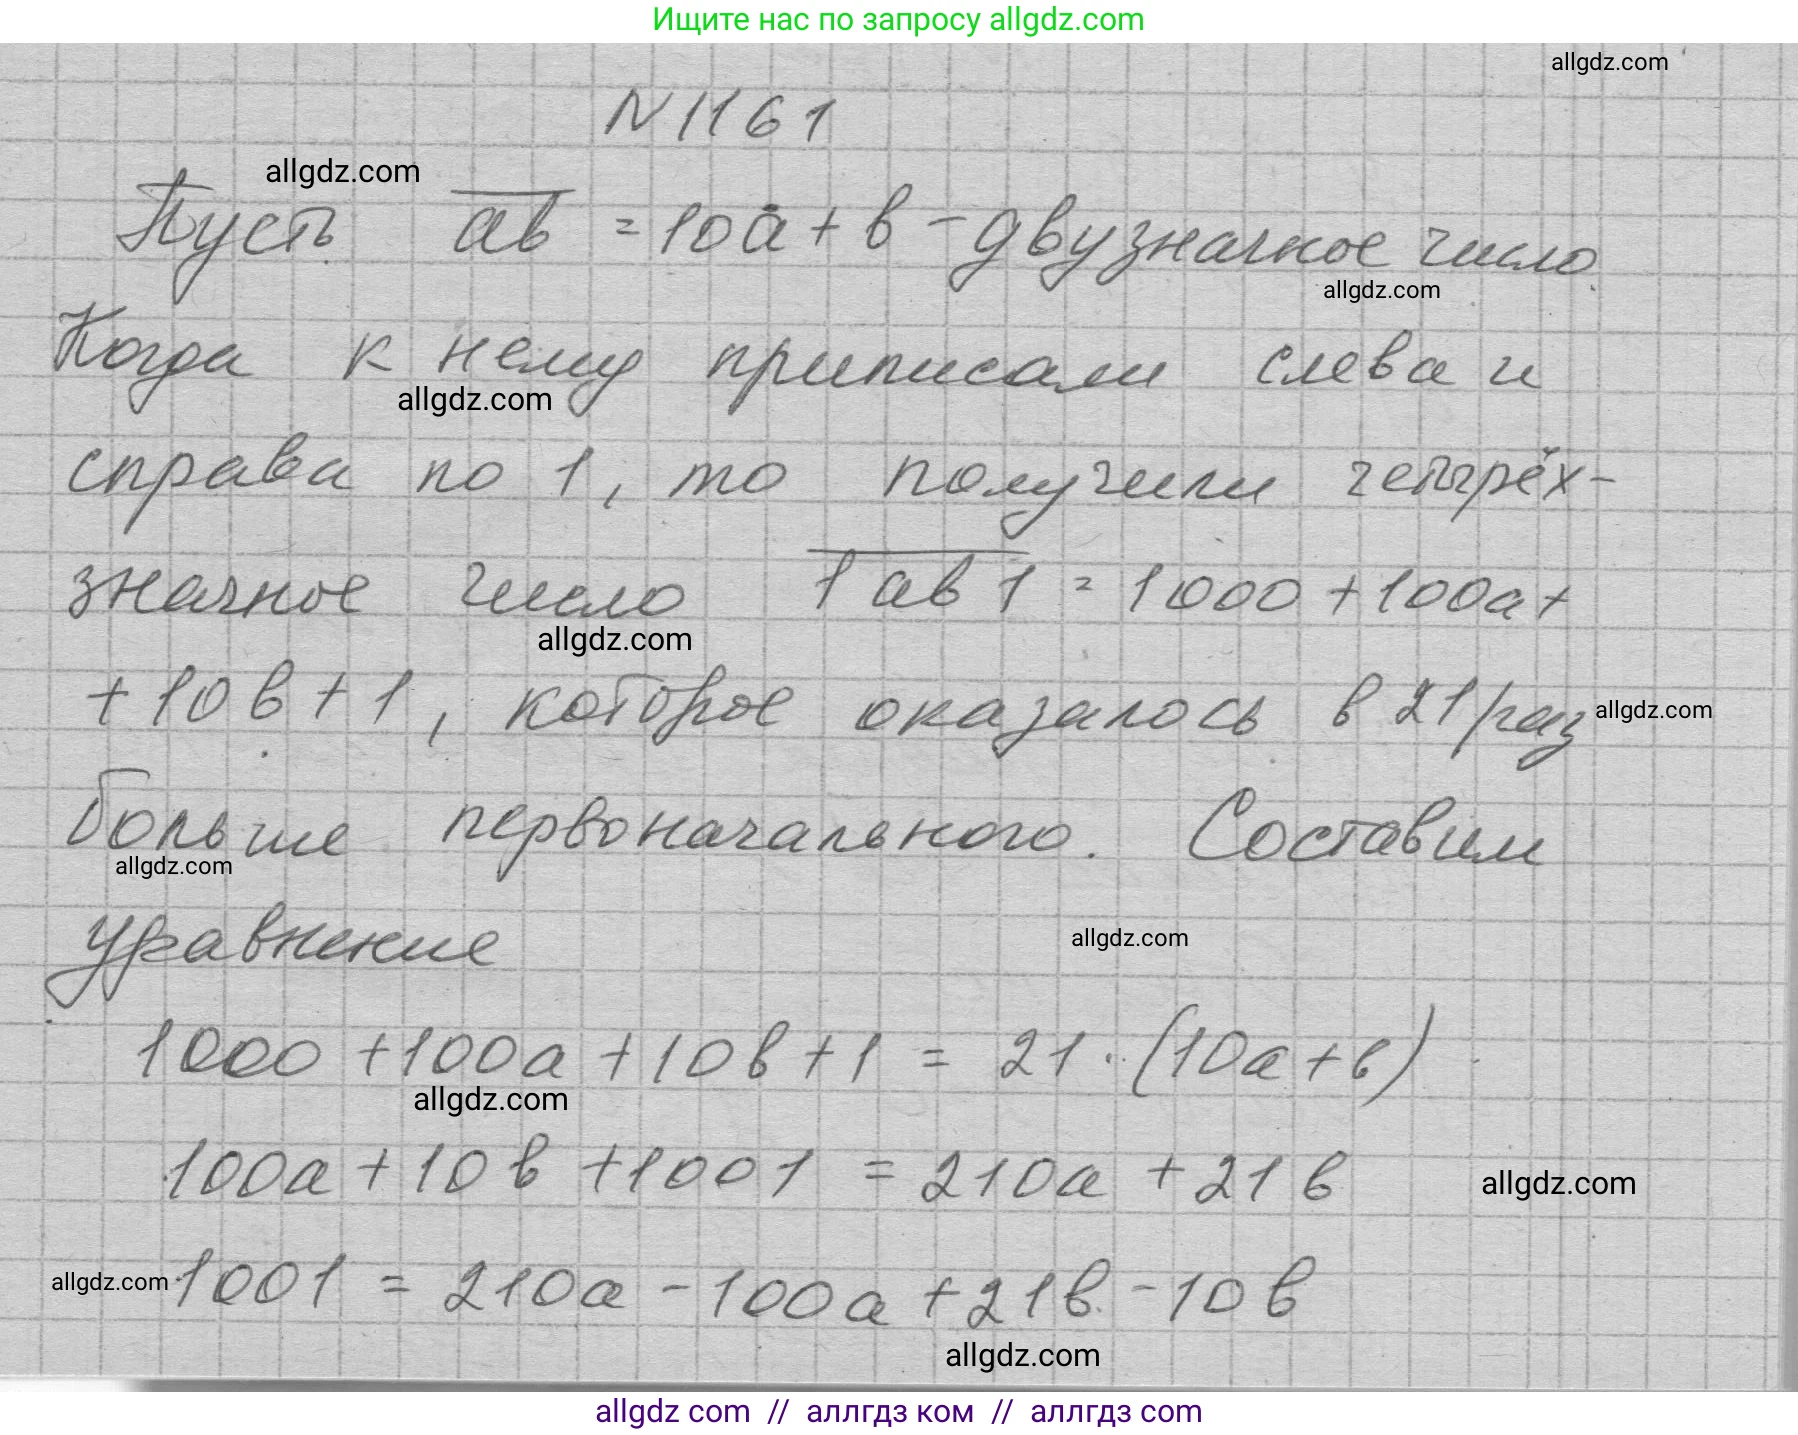 Ищите нас по запросу allgdz.com
allgdz.com
N 1161
allgdz.com
Пусть ab = 10a + b - двузначное число
allgdz.com
Когда к нему приписали слева и
allgdz.com
справа по 1, то получили четырёх-
значное число 1ab1 = 1000 + 100a +
allgdz.com
+ 10b + 1, которое оказалось в 21 раз
allgdz.com
больше первоначального. Составим
allgdz.com
уравнение
allgdz.com
1000 + 100a + 10b + 1 = 21 · (10a + b)
allgdz.com
100a + 10b + 1001 = 210a + 21b
allgdz.com
allgdz.com
1001 = 210a - 100a + 21b - 10b
allgdz.com
allgdz com // аллгдз ком // аллгдз com